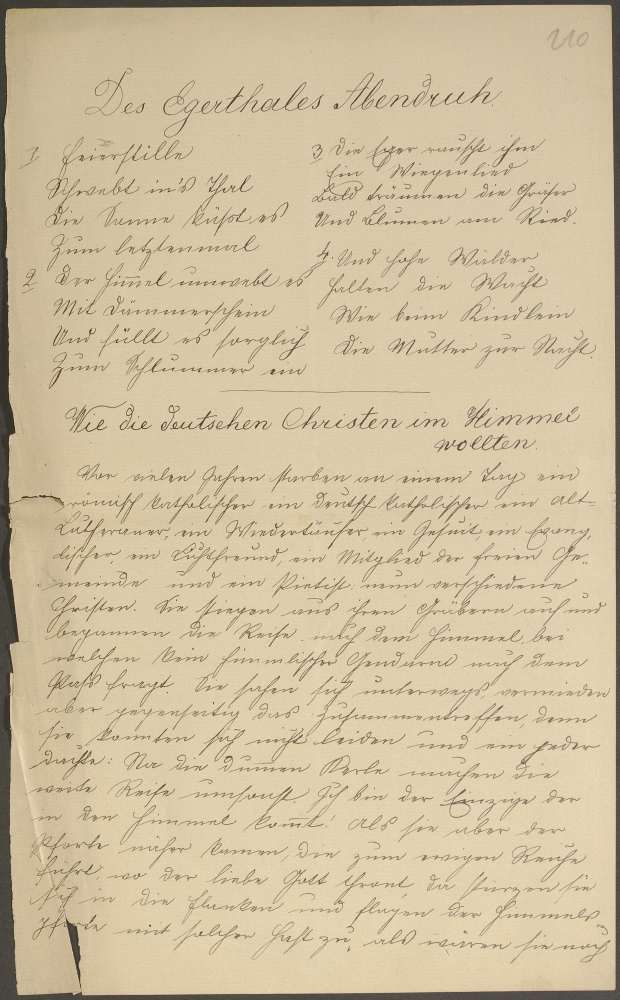 210
Des Egerthales Abendruh.
1 Feierstille
Schwebt in's Thal
Die Sonne küßt es
Zum letztenmal
2 Der Himmel umwebt es
Mit Dämmerschein
Und hüllt es sorglich
Zum Schlummer ein
3 Die Eger rauscht ihm
Ein Wiegenlied
Bald träumen die Gräser
Und Blumen am Ried.
4. Und hohe Wälder
halten die Wacht
Wie beim Kindlein
Die Mutter zur Nacht.
Wie die deutschen Christen im Himmel
wollten.
Vor vielen Jahren starben an einem Tag ein
römisch katholischer ein deutsch katholischer ein Alt-
Lutheraner, ein Wiedertäufer, ein Jesuit, ein Evang.
discher, ein Lichtfreund, ein Mitglied der freien Ge-
meinde und ein Pietist, neun verschiedene
Christen. Sie stiegen aus ihren Gräbern auf und
begannen die Reise nach dem Himmel, bei
welchen kein himmlischer Gendarm nach dem
Paß fragt. Sie sahen sich unterwegs, vermieden
aber gegenseitig das Zusammentreffen, denn
sie konnten sich nicht leiden und ein jeder
dachte: Na die dummen Kerle machen die
weite Reise umsonst. Ich bin der Einzige der
in den Himmel kommt! Als sie aber der
Pforte näher kamen, die zum ewigen Reiche
führt, wo der liebe Gott thront, da stürzen sie
sich in die Flanken und flogen der Himmels-
pforte mit solcher Hast zu, als wären sie noch